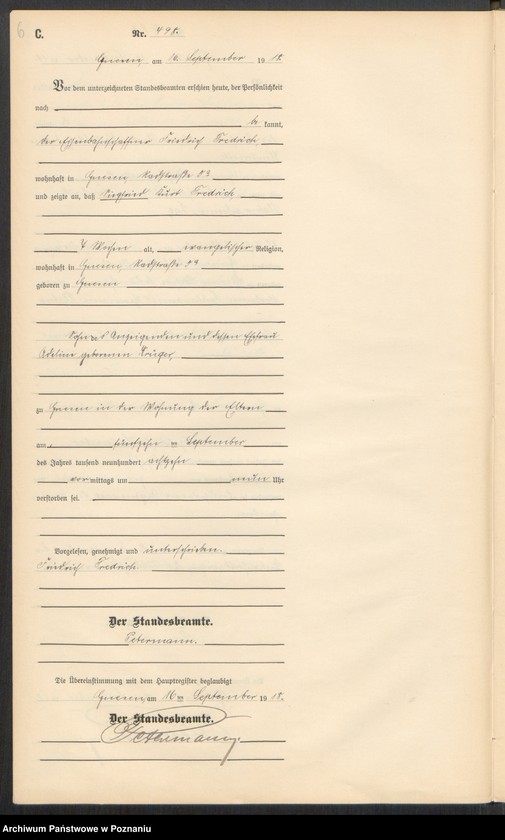 6 C. Nr. 498.
Gnesen am 16. September 1918.
Vor dem unterzeichneten Standesbeamten erschien heute, der Persönlichkeit
nach
be kannt,
der Eisenbahnschaffner Friedrich Fredrich
wohnhaft in Gnesen,
und zeigte an, daß Siegfried Kurt Fredrich
4 Wochen alt, evangelischer Religion,
wohnhaft in Gnesen,
geboren zu Gnesen
Sohn des Anzeigenden und dessen Ehefrau
Adeline geborenen Krüger,
zu Gnesen in der Wohnung der Eltern
am fünfzehn ten September
des Jahres tausend neunhundert achtzehn
vor mittags um neun Uhr
verstorben sei.
Vorgelesen, genehmigt und unterschrieben.
Friedrich Fredrich
Der Standesbeamte.
Petermann.
Die Übereinstimmung mit dem Hauptregister beglaubigt
Gnesen, am 16ten September 1918.
Der Standesbeamte.
Petermann
Archiwum Państwowe w Poznaniu